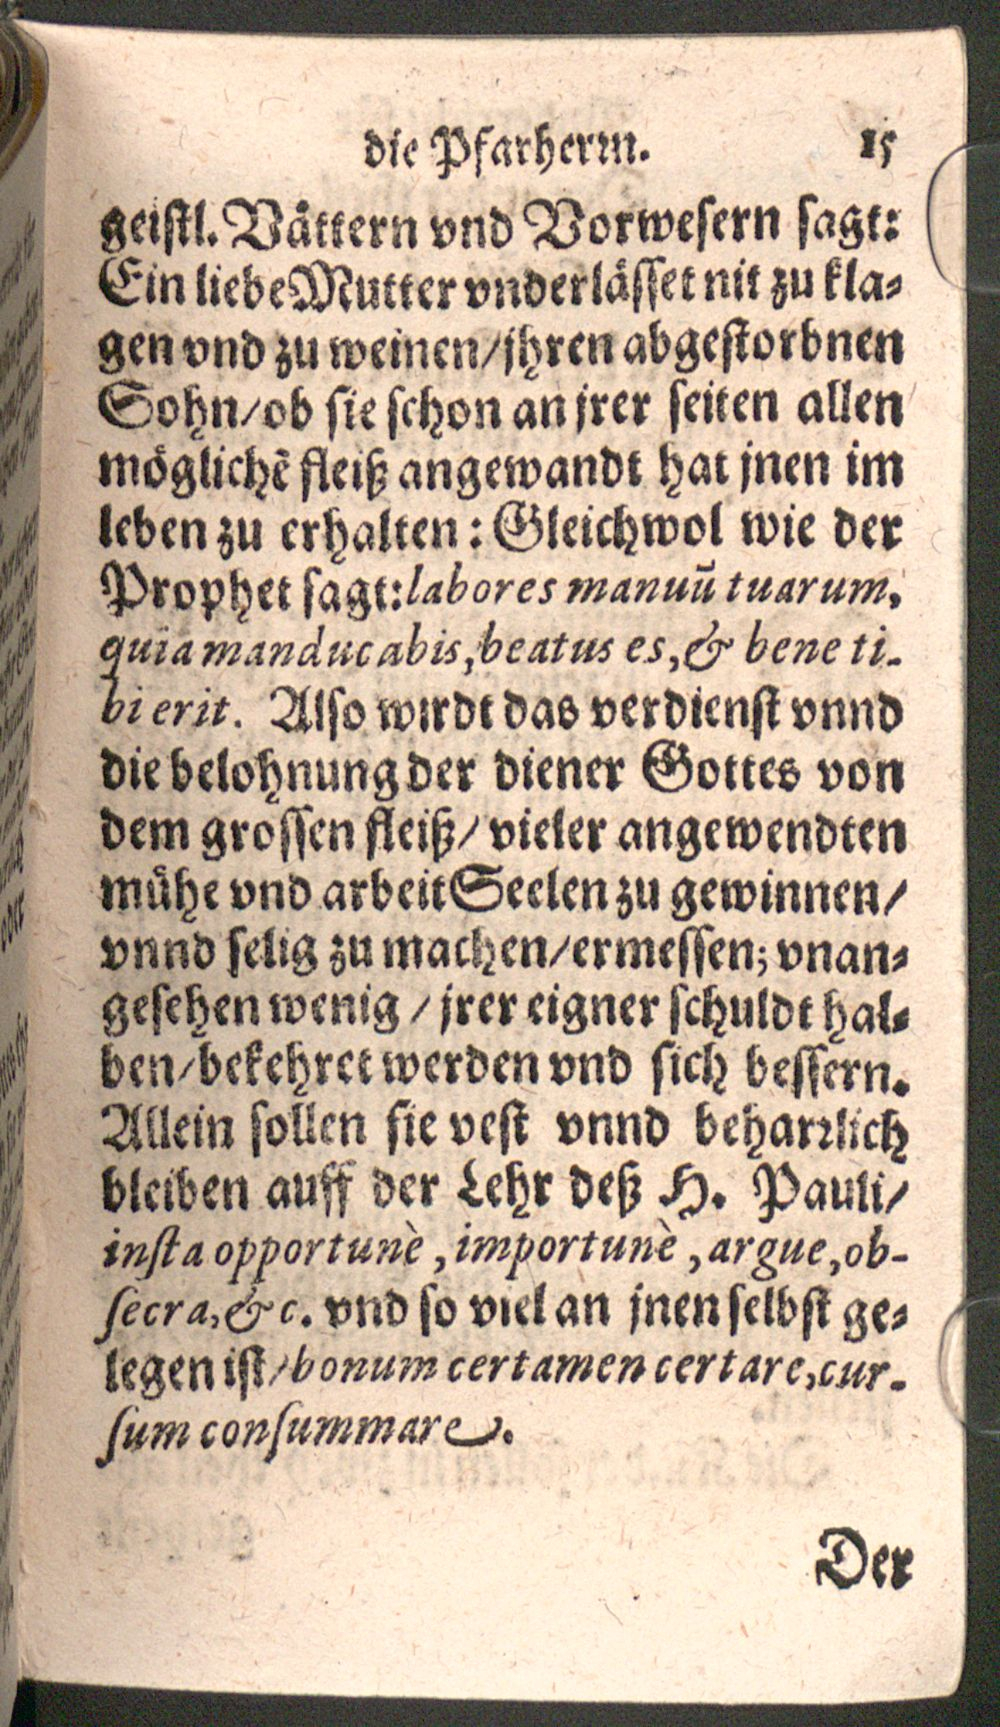 die Pfarherrn. 15
geistl. Våttern vnd Vorwesern sagt:
Ein liebe Mutter vnderlåsset nit zu kla-
gen vnd zu weinen/jhren abgestorbnen
Sohn/ob sie schon an jrer seiten allen
möglichē fleiß angewandt hat jnen im
leben zu erhalten: Gleichwol wie der
Prophet sagt: labores manuū tuarum,
quia manducabis, beatus es, & bene ti-
bi erit. Also wirdt das verdienst vnnd
die belohnung der diener Gottes von
dem grossen fleiß/ vieler angewendten
mühe vnd arbeit Seelen zu gewinnen/
vnnd selig zu machen/ermessen; vnan-
gesehen wenig / jrer eigner schuldt hal-
ben/bekehret werden vnd sich bessern.
Allein sollen sie vest vnnd beharrlich
bleiben auff der Lehr deß H. Pauli/
insta opportunè, importunè, argue, ob-
secra, &c. vnd so viel an jnen selbst ge-
legen ist/bonum certamen certare, cur-
sum consummare.
Der